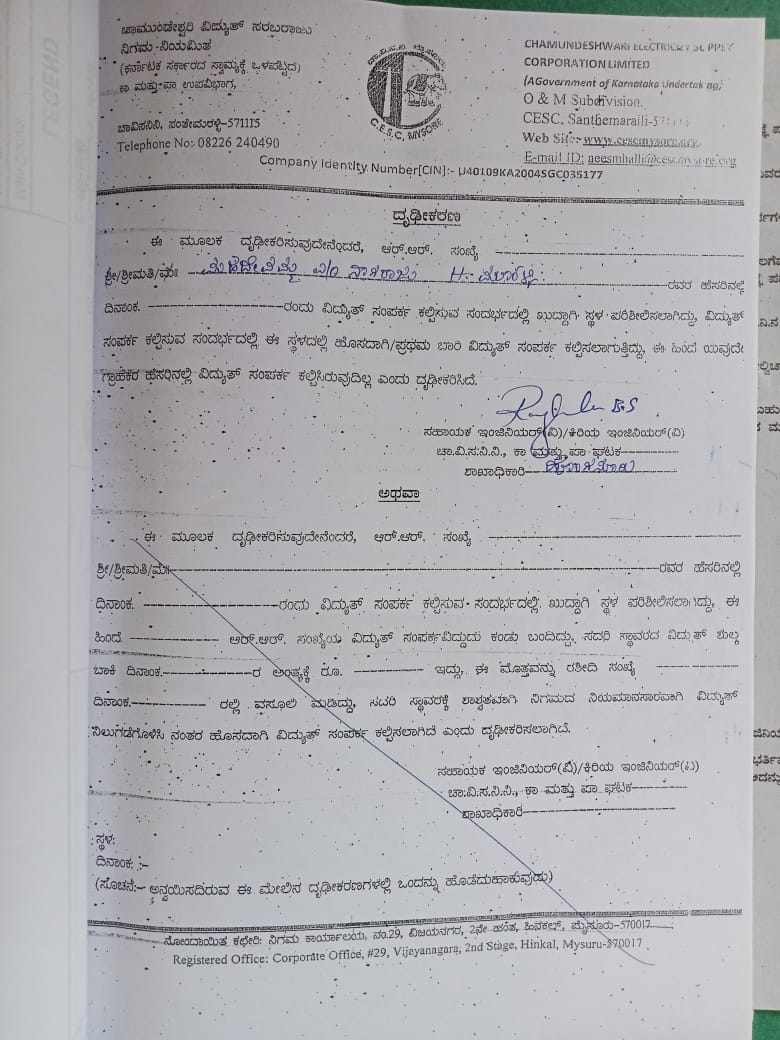 ಚಾಮುಂಡೇಶ್ವರಿ ವಿದ್ಯುತ್ ಸರಬರಾಜು
ನಿಗಮ ನಿಯಮಿತ
(ಕರ್ನಾಟಕ ಸರ್ಕಾರದ ಸ್ವಾಮ್ಯಕ್ಕೆ ಒಳಪಟ್ಟಿದ)
ಕಾ ಮತ್ತು ಪಾ ಉಪವಿಭಾಗ,
ಚಾವಿಸನಿನಿ, ಸಂತೇಮರಳ್ಳಿ-571115
Telephone No: 08226 240490
C.E.S.C, MYSORE
CHAMUNDESHWARI ELECTRICITY SUPPLY
CORPORATION LIMITED
(AGovernment of Karnataka Undertaking)
O & M Subdivision,
CESC, Santhemaraili-57
Web Site:- www.cescmysore.org
E-mail ID: aeesmhalli@cescmysore.org
Company Identity Number[CIN]:- U40109KA2004SGC035177
ದೃಢೀಕರಣ
ಈ ಮೂಲಕ ದೃಢೀಕರಿಸುವುದೇನೆಂದರೆ, ಆರ್.ಆರ್. ಸಂಖ್ಯೆ
ಶ್ರೀ/ಶ್ರೀಮತಿ/ಮೆ॥ ರವರ ಹೆಸರಿನಲ್ಲಿ
ದಿನಾಂಕ. ರಂದು ವಿದ್ಯುತ್ ಸಂಪರ್ಕ ಕಲ್ಪಿಸುವ ಸಂದರ್ಭದಲ್ಲಿ ಖುದ್ದಾಗಿ ಸ್ಥಳ ಪರಿಶೀಲಿಸಲಾಗಿದ್ದು, ವಿದ್ಯುತ್
ಸಂಪರ್ಕ ಕಲ್ಪಿಸುವ ಸಂದರ್ಭದಲ್ಲಿ ಈ ಸ್ಥಳದಲ್ಲಿ ಹೊಸದಾಗಿ/ಪ್ರಥಮ ಬಾರಿ ವಿದ್ಯುತ್ ಸಂಪರ್ಕ ಕಲ್ಪಿಸಲಾಗುತ್ತಿದ್ದು, ಈ ಹಿಂದೆ ಯಾವುದೇ
ಗ್ರಾಹಕರ ಹೆಸರಿನಲ್ಲಿ ವಿದ್ಯುತ್ ಸಂಪರ್ಕ ಕಲ್ಪಿಸಿರುವುದಿಲ್ಲ ಎಂದು ದೃಢೀಕರಿಸಿದೆ.
ಸಹಾಯಕ ಇಂಜಿನಿಯರ್(ವಿ)/ಕಿರಿಯ ಇಂಜಿನಿಯರ್(ವಿ)
ಚಾ.ವಿ.ಸ.ನಿ.ನಿ., ಕಾ ಮತ್ತು ಪಾ ಘಟಕ
ಶಾಖಾಧಿಕಾರಿ
ಅಥವಾ
ಈ ಮೂಲಕ ದೃಢೀಕರಿಸುವುದೇನೆಂದರೆ, ಆರ್.ಆರ್. ಸಂಖ್ಯೆ
ಶ್ರೀ/ಶ್ರೀಮತಿ/ಮೆ॥ ರವರ ಹೆಸರಿನಲ್ಲಿ
ದಿನಾಂಕ. ರಂದು ವಿದ್ಯುತ್ ಸಂಪರ್ಕ ಕಲ್ಪಿಸುವ ಸಂದರ್ಭದಲ್ಲಿ ಖುದ್ದಾಗಿ ಸ್ಥಳ ಪರಿಶೀಲಿಸಲಾಗಿದ್ದು, ಈ
ಹಿಂದೆ. ಆರ್.ಆರ್. ಸಂಖ್ಯೆಯ ವಿದ್ಯುತ್ ಸಂಪರ್ಕವಿದ್ದುದು ಕಂಡು ಬಂದಿದ್ದು, ಸದರಿ ಸ್ಥಾವರದ ವಿದ್ಯುತ್ ಶುಲ್ಕ
ಬಾಕಿ ದಿನಾಂಕ. ರ ಅಂತ್ಯಕ್ಕೆ ರೂ. ಇದ್ದು, ಈ ಮೊತ್ತವನ್ನು ರಶೀದಿ ಸಂಖ್ಯೆ
ದಿನಾಂಕ. ರಲ್ಲಿ ವಸೂಲಿ ಮಾಡಿದ್ದು, ಸದರಿ ಸ್ಥಾವರಕ್ಕೆ ಶಾಶ್ವತವಾಗಿ ನಿಗಮದ ನಿಯಮಾನುಸಾರವಾಗಿ ವಿದ್ಯುತ್
ನಿಲುಗಡೆಗೊಳಿಸಿ ನಂತರ ಹೊಸದಾಗಿ ವಿದ್ಯುತ್ ಸಂಪರ್ಕ ಕಲ್ಪಿಸಲಾಗಿದೆ ಎಂದು ದೃಢೀಕರಿಸಲಾಗಿದೆ.
ಸಹಾಯಕ ಇಂಜಿನಿಯರ್(ವಿ)/ಕಿರಿಯ ಇಂಜಿನಿಯರ್(ವಿ)
ಚಾ.ವಿ.ಸ.ನಿ.ನಿ., ಕಾ ಮತ್ತು ಪಾ ಘಟಕ
ಶಾಖಾಧಿಕಾರಿ
ಸ್ಥಳ:
ದಿನಾಂಕ: :-
(ಸೂಚನೆ:- ಅನ್ವಯಿಸದಿರುವ ಈ ಮೇಲಿನ ದೃಢೀಕರಣಗಳಲ್ಲಿ ಒಂದನ್ನು ಹೊಡೆದುಹಾಕುವುದು)
ನೋಂದಾಯಿತ ಕಛೇರಿ: ನಿಗಮ ಕಾರ್ಯಾಲಯ, ನಂ.29, ವಿಜಯನಗರ, 2ನೇ ಹಂತ, ಹಿನಕಲ್, ಮೈಸೂರು-570017
Registered Office: Corporate Office, #29, Vijayanagara, 2nd Stage, Hinkal, Mysuru-570017